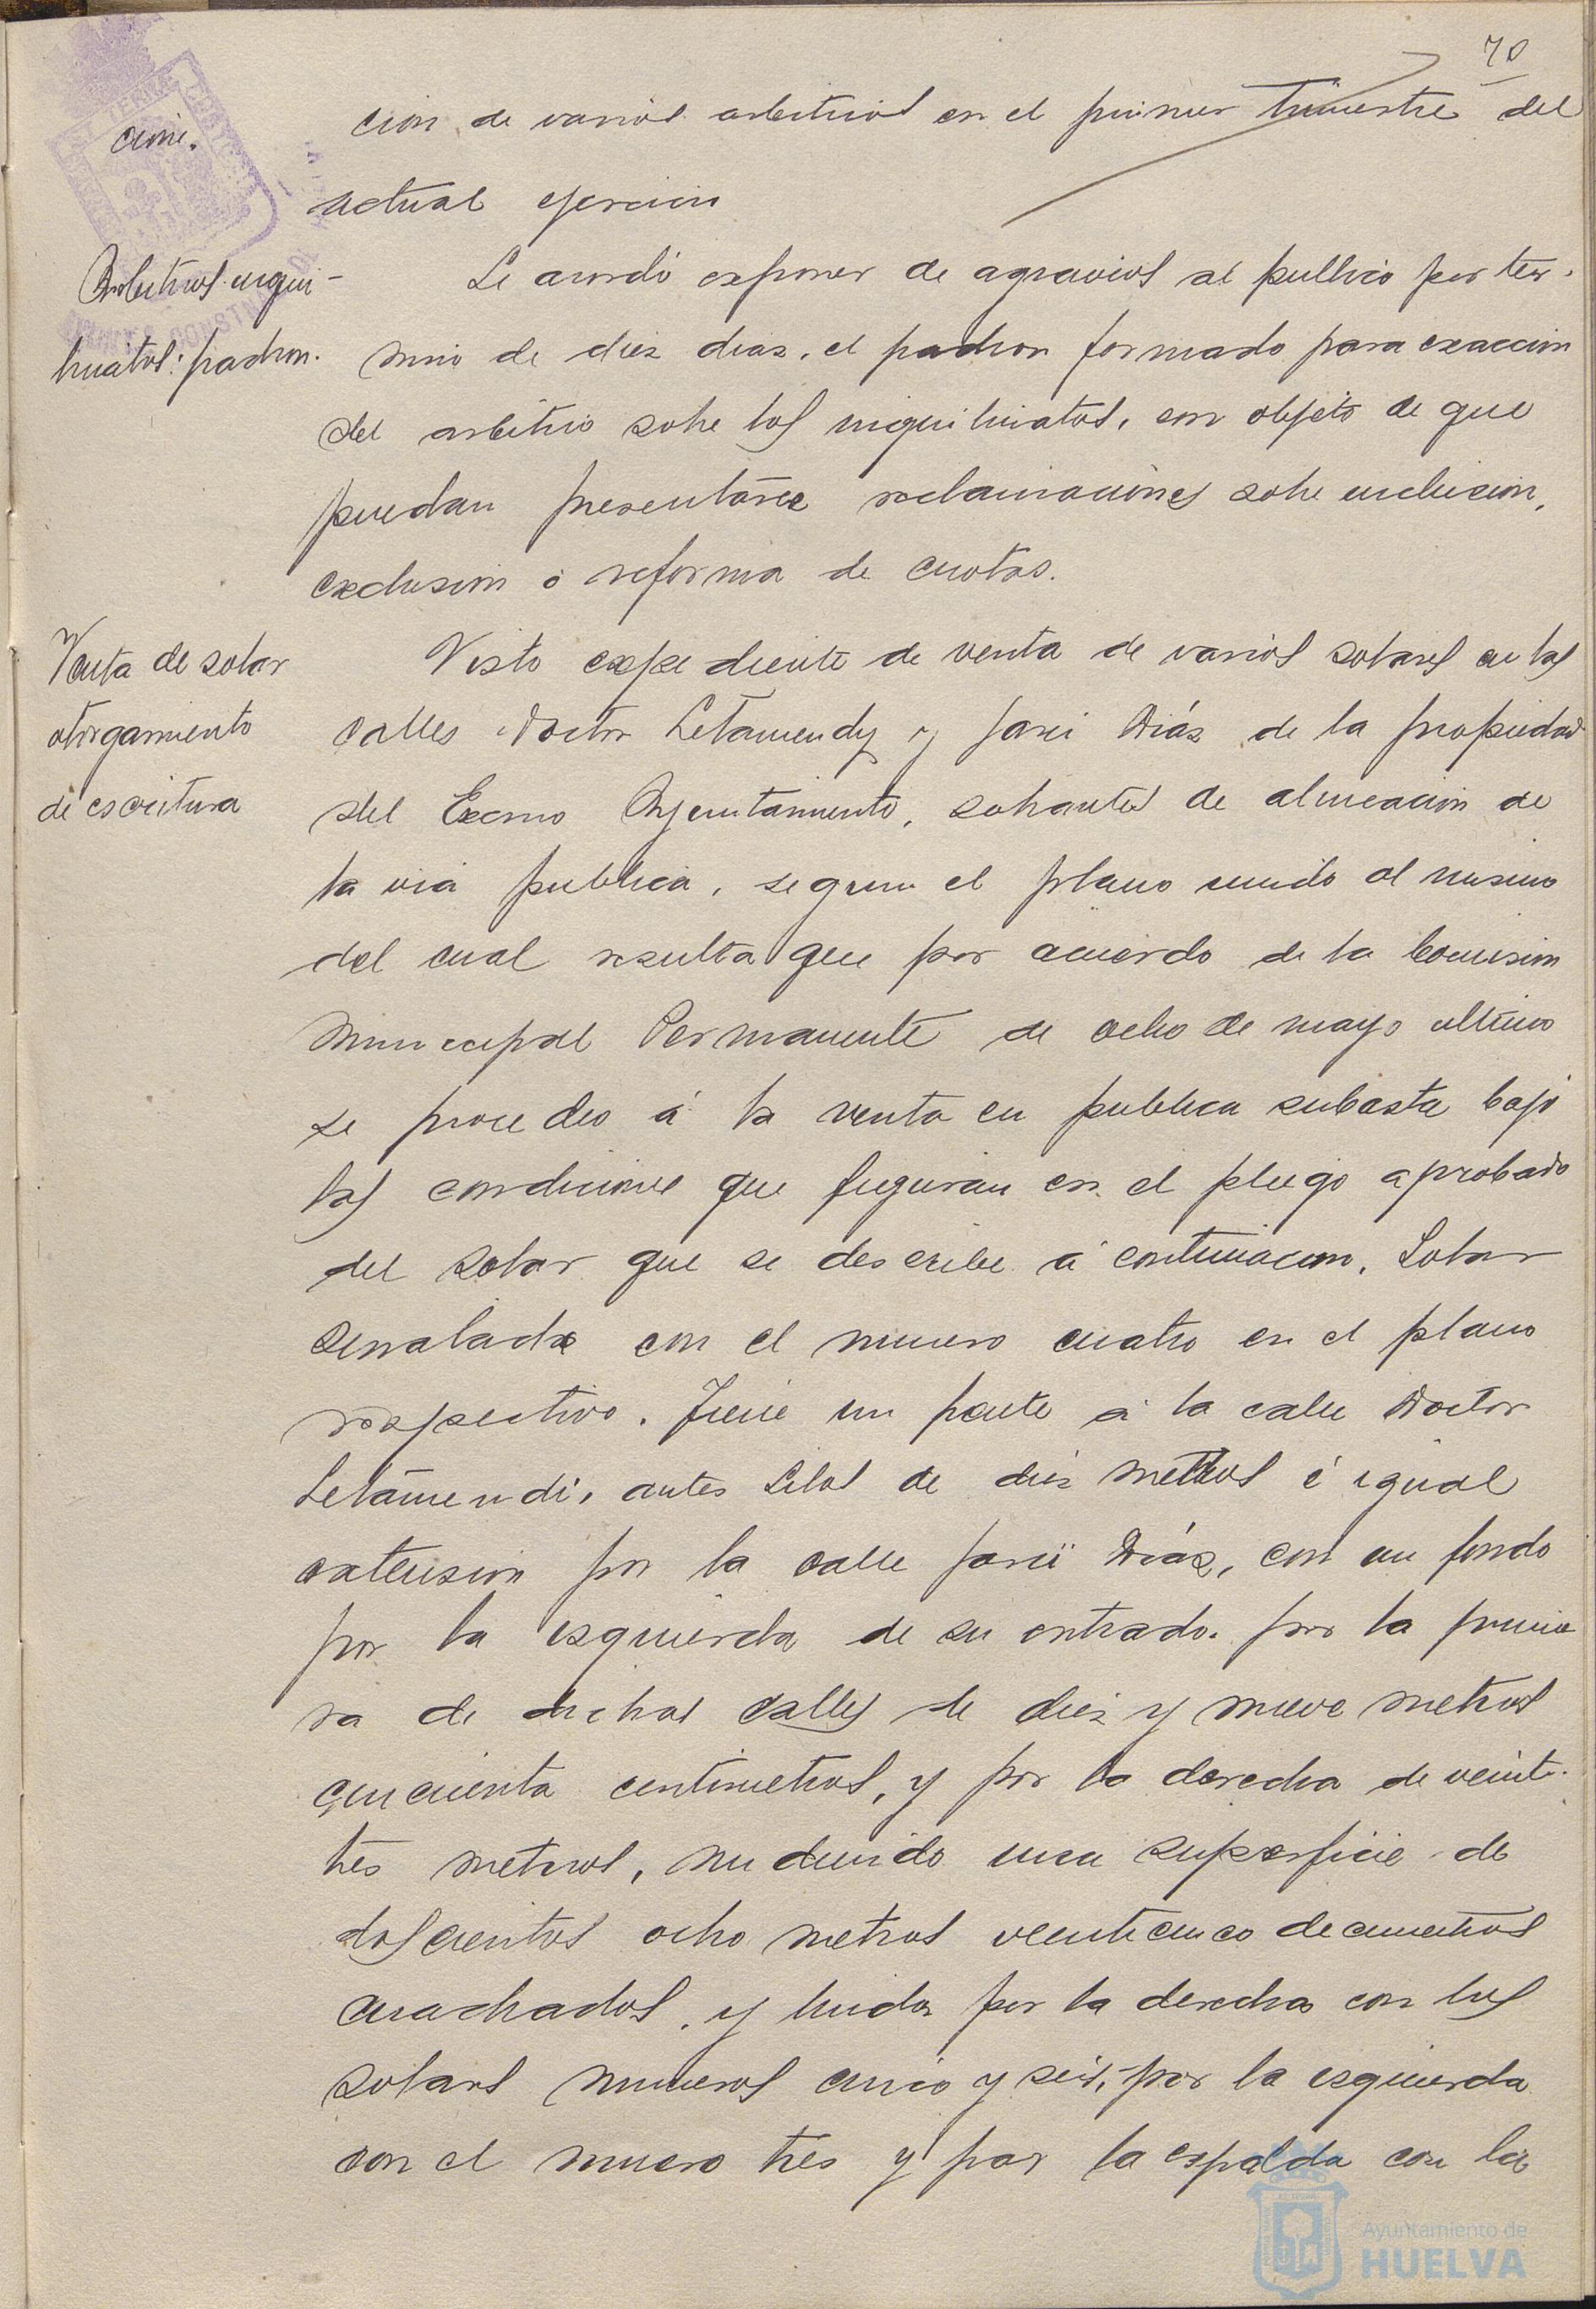 70
cion de varios arbitrios en el primer trimestre del
actual ejercicio
Arbitrios inqui-
linatos: padron.
Se acordó exponer de agravios al publico por ter-
mino de diez dias, el padron formado para exaccion
del arbitrio sobre los inquilinatos, con objeto de que
puedan presentarse reclamaciones sobre inclusion,
exclusion ó reforma de cuotas.
Venta de solar
otorgamiento
de escritura
Visto expediente de venta de varios solares en las
calles Doctor Letamendy y Díaz de la propiedad
del Excmo Ayuntamiento, sobrantes de alineacion de
la via publica, segun el plano unido al mismo
del cual resulta que por acuerdo de la Comision
Municipal Permanente de ocho de mayo ultimo
se procedio á la venta en publica subasta bajo
las condiciones que figuran en el pliego aprobado
del solar que se describe á continuacion. Solar
senalado con el numero cuatro en el plano
respectivo. Tiene un frente á la calle Doctor
Letamendi, antes Silos de diez metros é igual
extension por la calle Díaz, con un fondo
por la izquierda de su entrada por la prime
ra de dichas calles de diez y nueve metros
cincuenta centimetros, y por la derecha de veinti-
tres metros, midiendo una superficie de
doscientos ocho metros veinticinco decimetros
cuadrados, y linda por la derecha con los
solares numeros cinco y seis, por la izquierda
con el numero tres y por la espalda con la
Ayuntamiento de
HUELVA